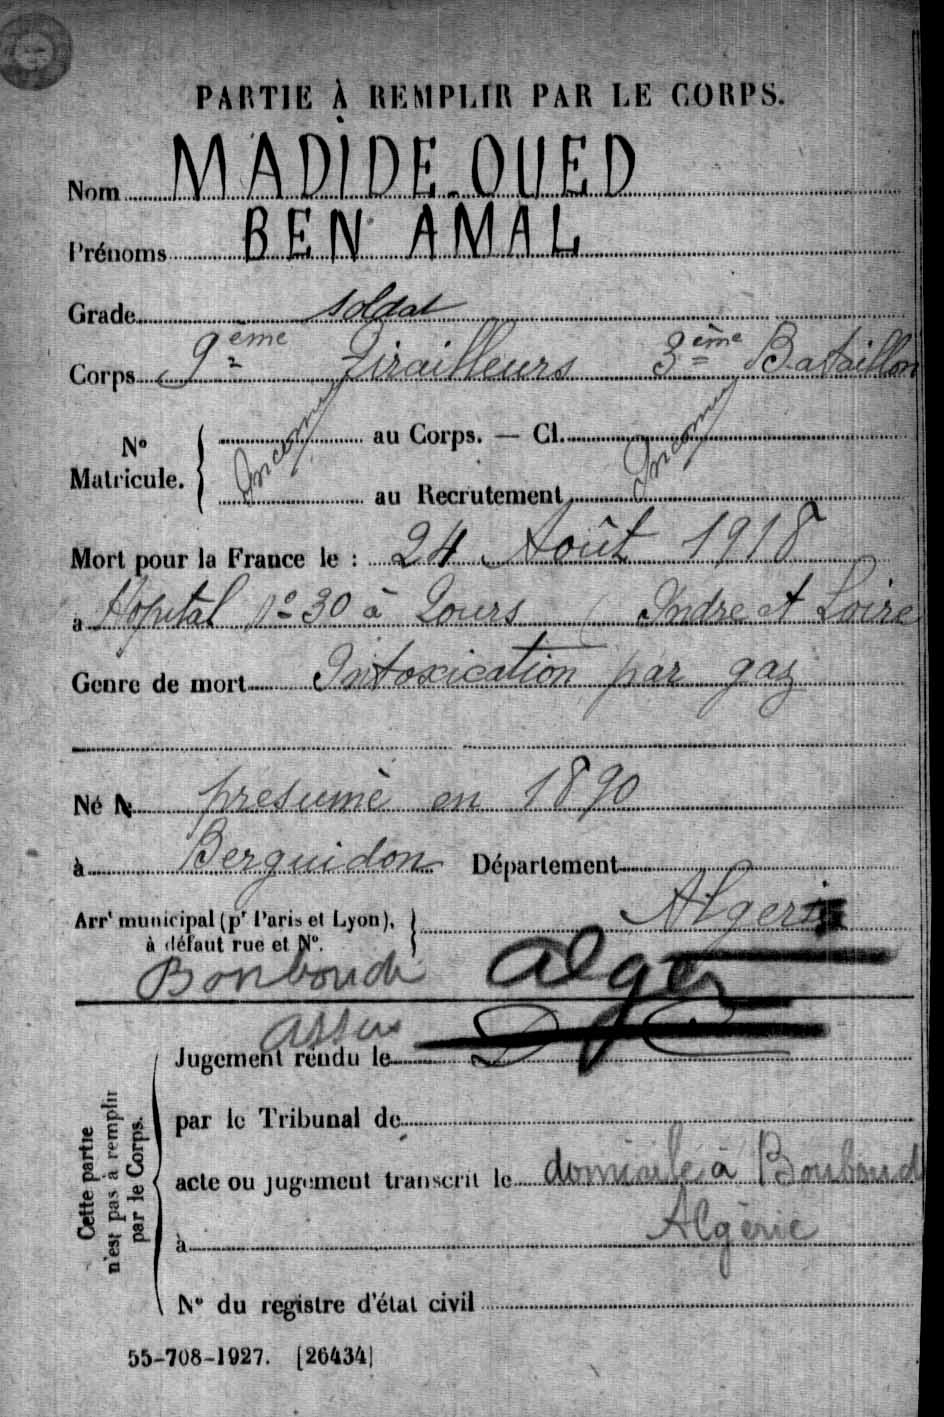 PARTIE À REMPLIR PAR LE CORPS.
Nom MADIDE-OUED
Prénoms BEN AMAL
Grade soldat
Corps 9ème Tirailleurs 3ème Bataillon
No Matricule. { Inconnu au Corps. — Cl. Inconnu
au Recrutement
Mort pour la France le : 24 Août 1918
a Hôpital no 30 à Tours (Indre et Loire
Genre de mort Intoxication par gaz
Né présumé en 1890
à Berguidon Département
Arrt municipal (pr Paris et Lyon), à défaut rue et No. } Algérie
Bouboudi Alger
Jugement rendu le
par le Tribunal de
acte ou jugement transcrit le domicile à Bouboud
Algérie
à
No du registre d'état civil
Cette partie n'est pas à remplir par le Corps.
55-708-1927. [26434]